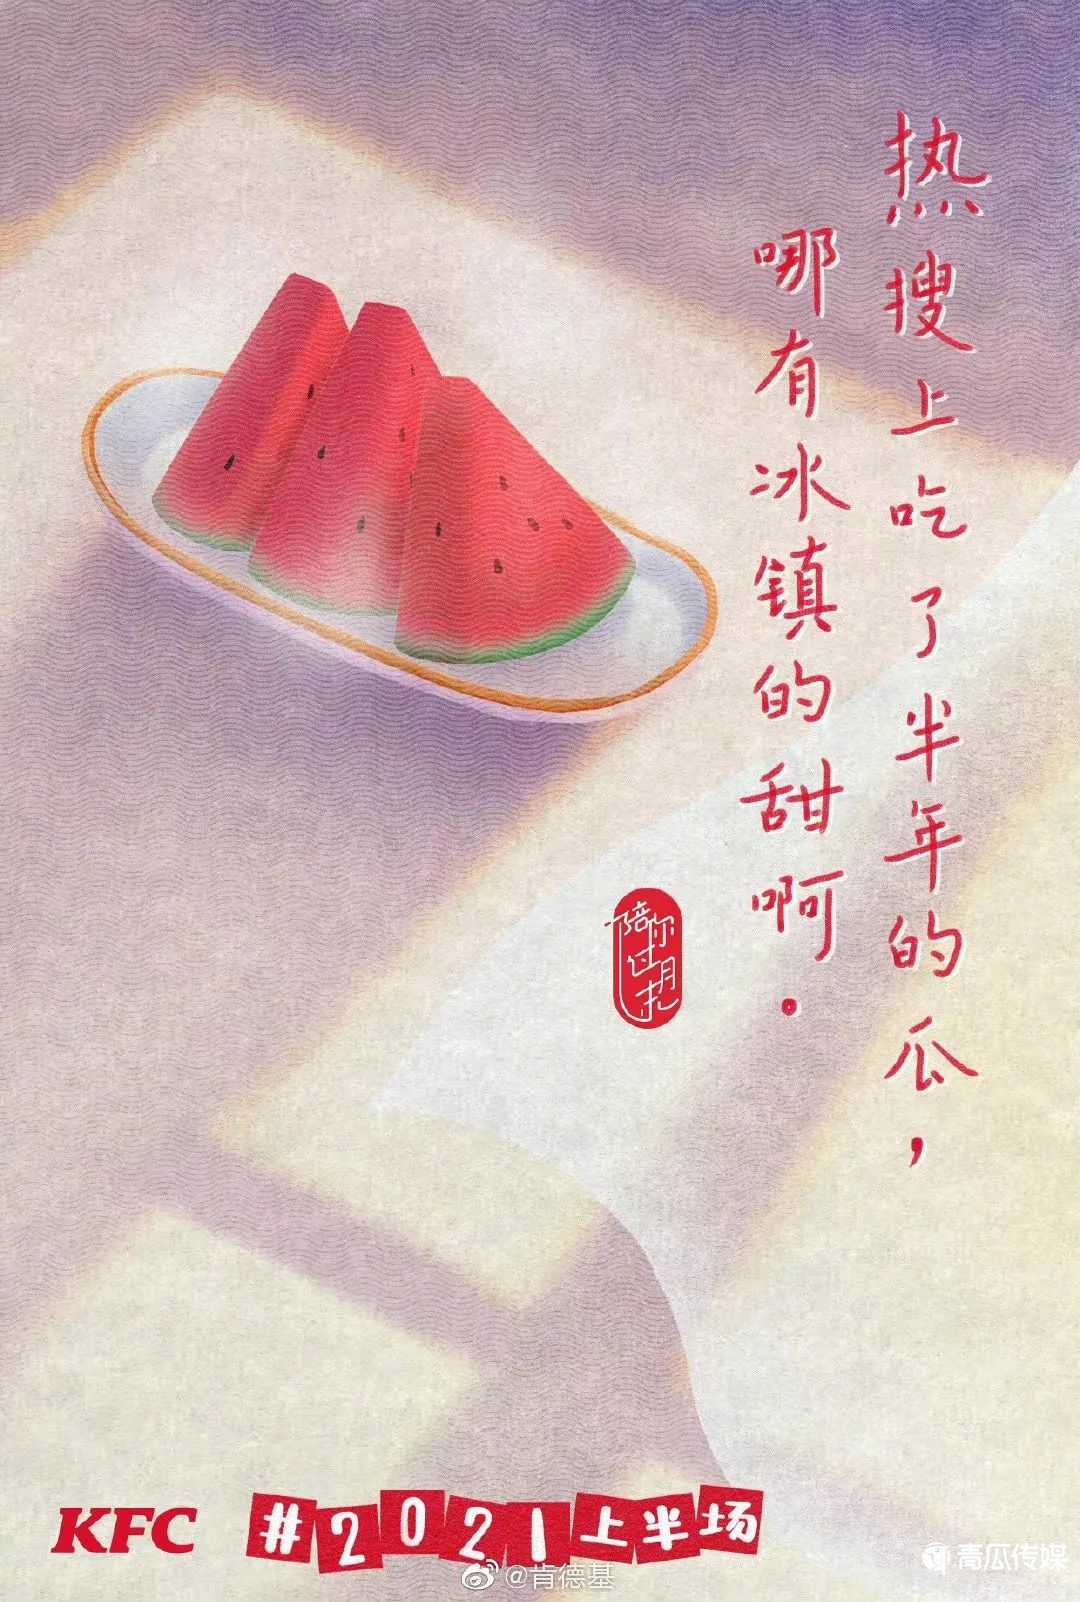 热搜上吃了半年的瓜，
哪有冰镇的甜啊.
陪你
过月
KFC
#2021上半场
@肯德基
青瓜传媒